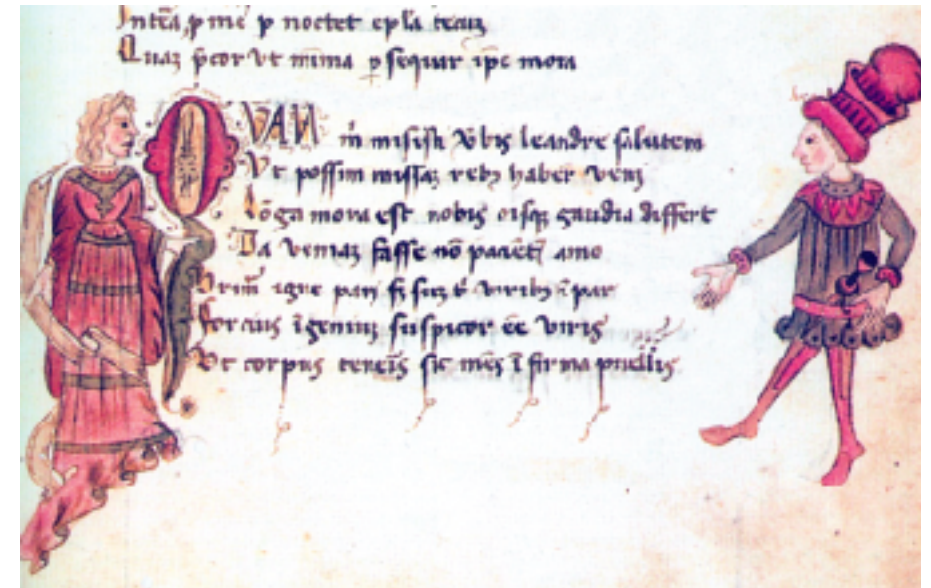 Int̄ea ꝓ me p noctet ep̄la tecuꝫ
Quaꝫ p̄cor vt minima ꝓsequar ip̄e mora
QVAM m̄ misisti v̄bis leandre salutem
Vt possim missaꝫ rebꝫ haber̄ veni
lōga mora est nobis oīsqꝫ gaudia differt
Da veniaꝫ fasse nō paciēt̄ amo
Vrim̄ igne pari sꝫ suꝫ t̄ viribꝫ īpar
forcius īgeniuꝫ suspicor eē viris
Vt corpus teneris sic mēs īfirma puellis